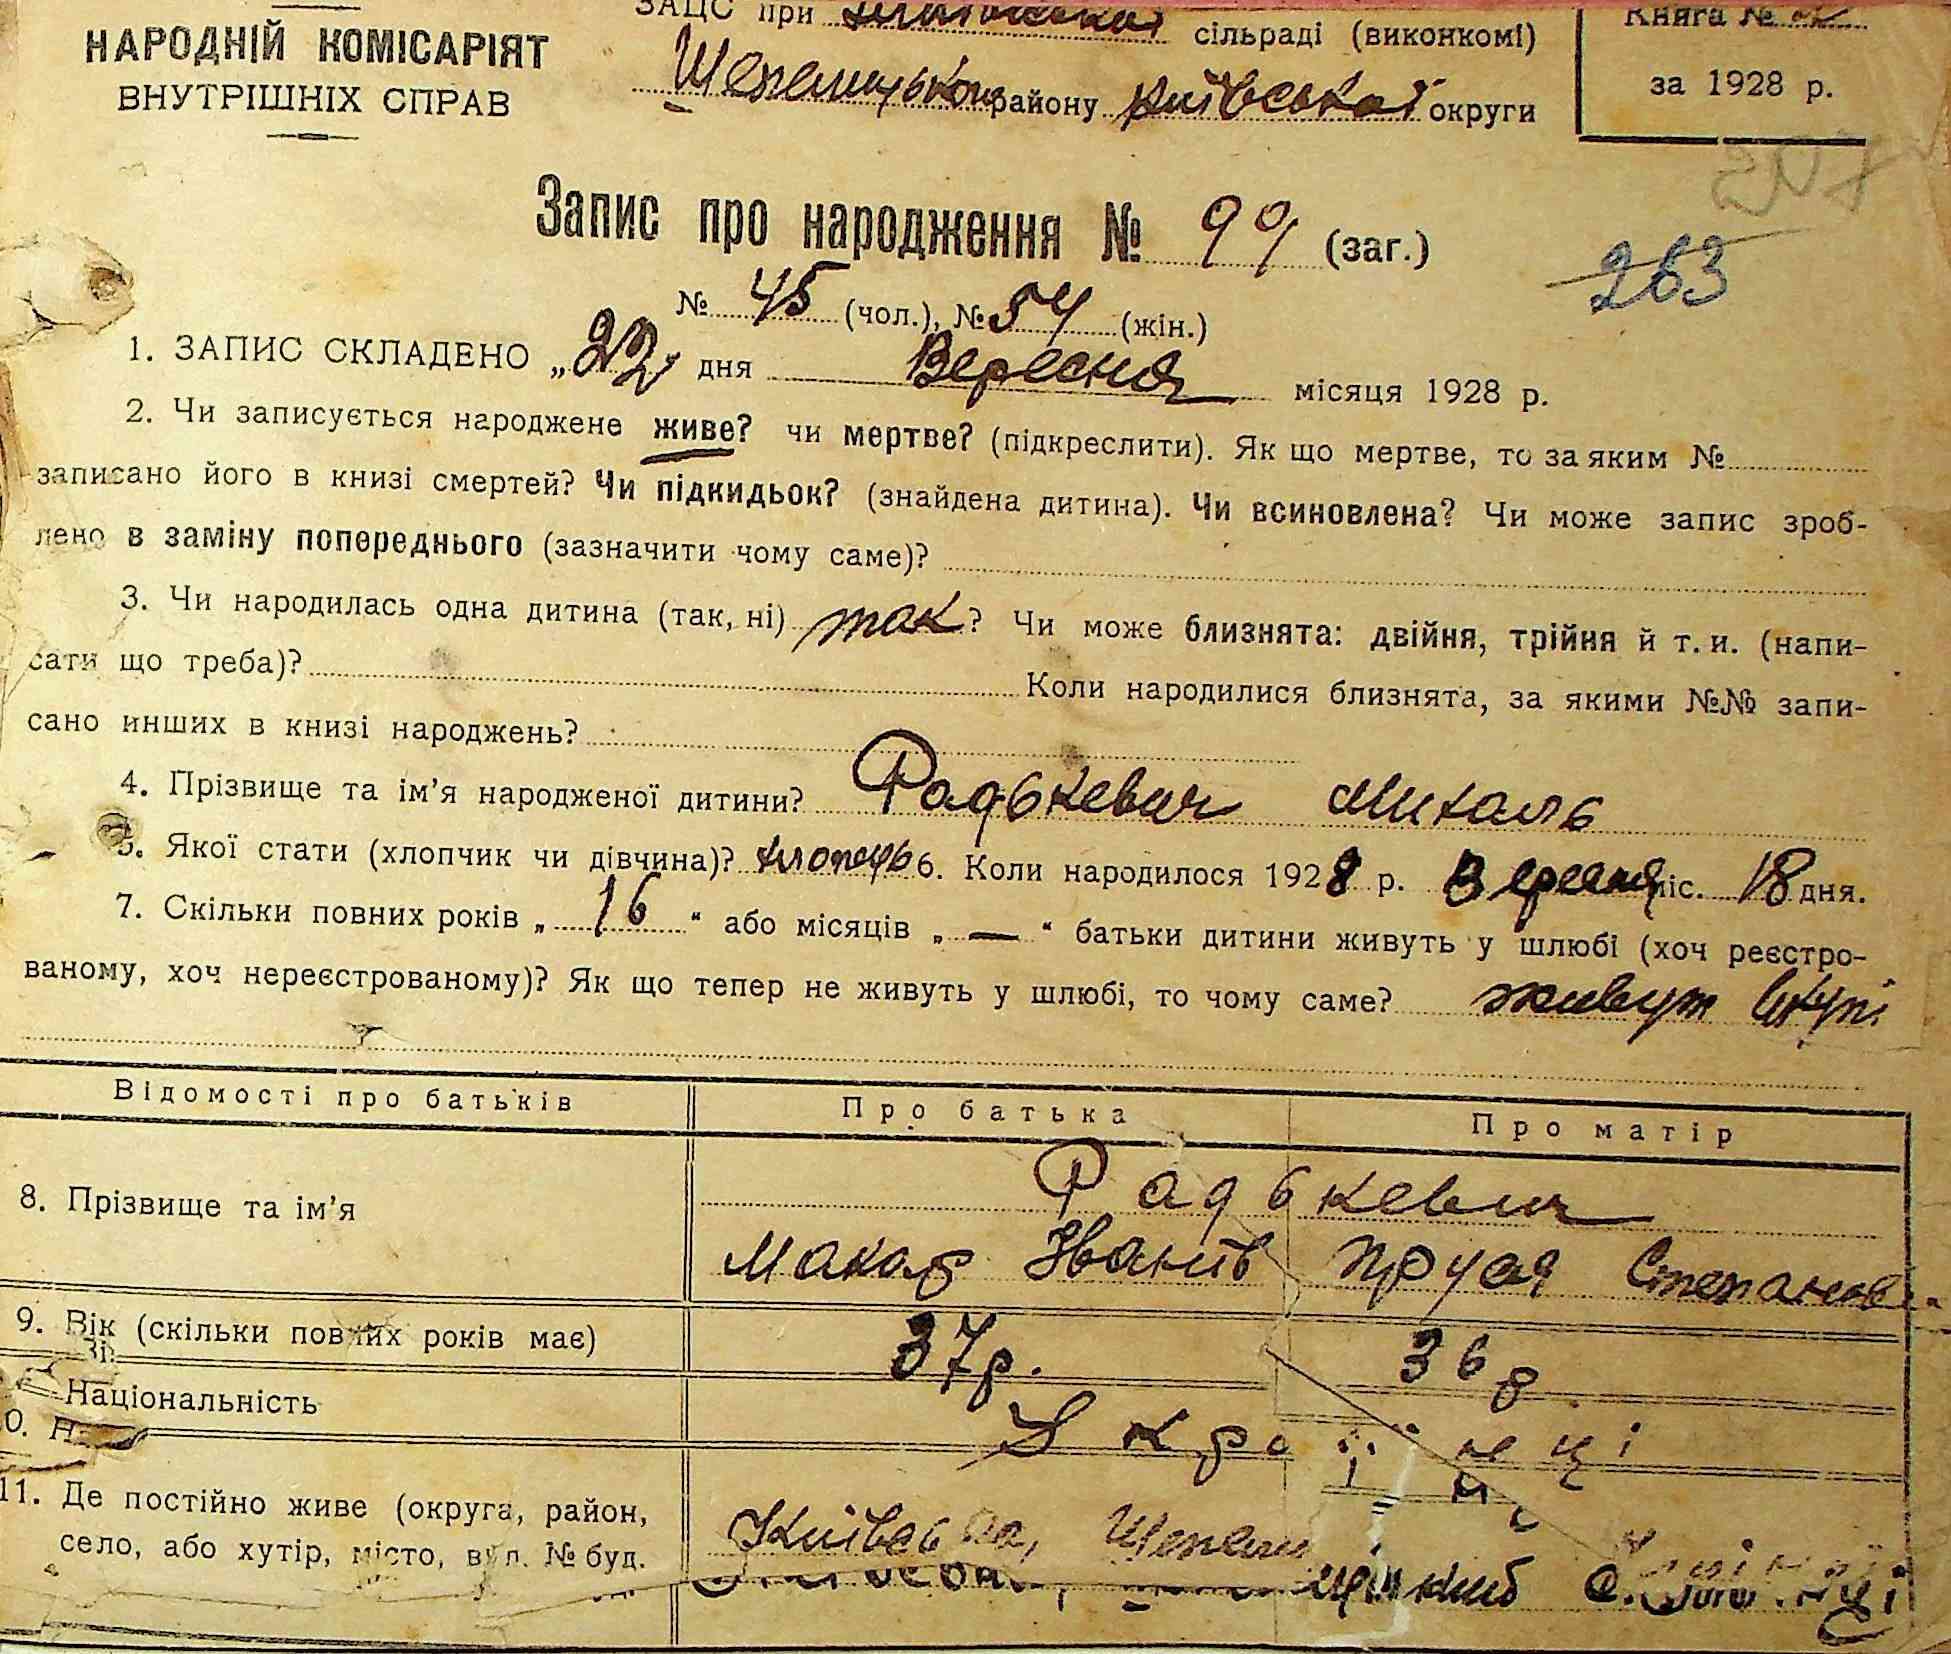 НАРОДНІЙ КОМІСАРІЯТ
ВНУТРІШНІХ СПРАВ
ЗАЦС при сільраді (виконкомі)
району Київської округи
Книга №
за 1928 р.
207
263
Запис про народження № 99 (заг.)
№ 45 (чол.), № 54 (жін.)
1. ЗАПИС СКЛАДЕНО „22 дня Вересня місяця 1928 р.
2. Чи записується народжене живе? чи мертве? (підкреслити). Як що мертве, то за яким №
записано його в книзі смертей? Чи підкидьок? (знайдена дитина). Чи всиновлена? Чи може запис зроб-
лено в заміну попереднього (зазначити чому саме)?
3. Чи народилась одна дитина (так, ні) так? Чи може близнята: двійня, трійня й т. и. (напи-
сати що треба)? Коли народилися близнята, за якими №№ запи-
сано инших в книзі народжень?
4. Прізвище та ім’я народженої дитини? Радькевич Михаль
5. Якої стати (хлопчик чи дівчина)? хлопець 6. Коли народилося 1928 р. Вересня міс. 18 дня.
7. Скільки повних років „ 16 “ або місяців „ — “ батьки дитини живуть у шлюбі (хоч реєстро-
ваному, хоч нереєстрованому)? Як що тепер не живуть у шлюбі, то чому саме? живут вкупі
Відомості про батьків Про батька Про матір
8. Прізвище та ім’я Радькевич
Макар Іванів Степанов
9. Вік (скільки повних років має) 37р. 36 р
Національність Українці
0. Н
11. Де постійно живе (округа, район,
село, або хутір, місто, вул. № буд.
Київська,